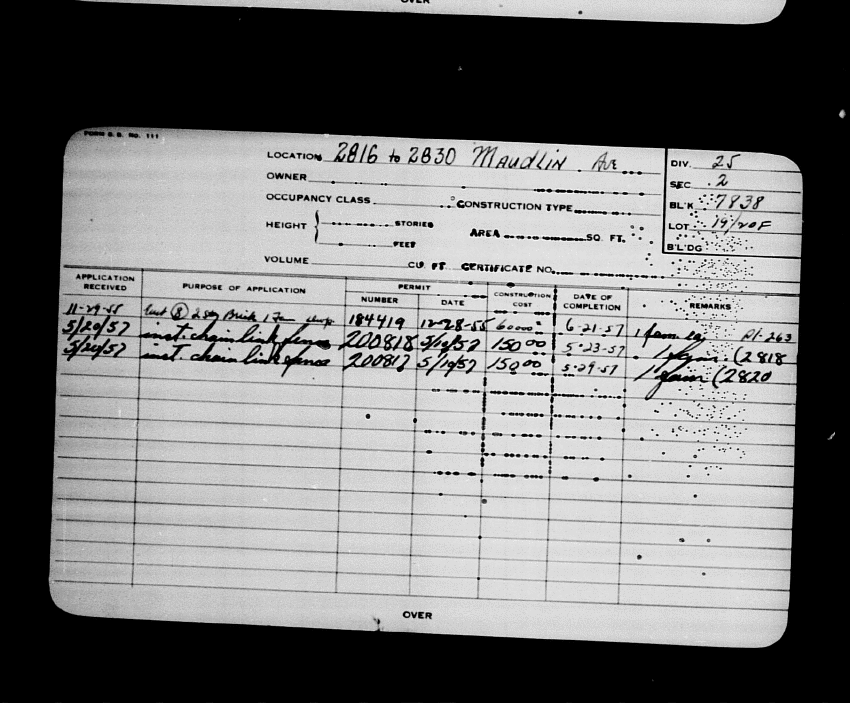 OVER
FORM B. B. NO. 111
LOCATION 2816 to 2830 MAUDLIN Ave
DIV. 25
OWNER
SEC. 2
OCCUPANCY CLASS CONSTRUCTION TYPE
BL'K 7838
HEIGHT STORIES AREA SQ. FT.
LOT 19/20F
FEET
BL'DG
VOLUME CU. FT. CERTIFICATE NO.
APPLICATION RECEIVED PURPOSE OF APPLICATION PERMIT NUMBER DATE CONSTRUCTION COST DATE OF COMPLETION REMARKS
11-29-55 (8) 2 sty Brick 1 Fam 184419 12-28-55 60000 6-21-57 1 family
5/20/57 inst. chain link fence 200818 5/10/57 150.00 5-23-57 1 fam. (2818
5/20/57 inst. chain link fence 200817 5/10/57 150.00 5-29-57 1 fam (2820
OVER